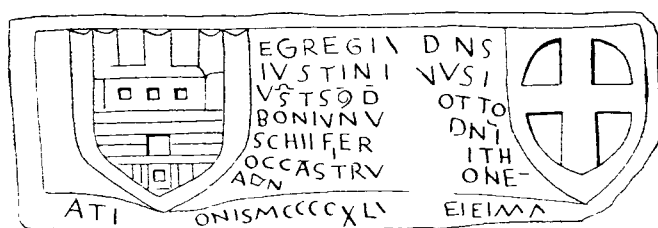 EGREGIV DNS
IVSTINI VVSI
VSTSƆD OTTO
BONIVNV DNI
SCHIIFER ITH
OCCASTRV ONE-
ADN
ATI ONISMCCCCXLI EIEIMA